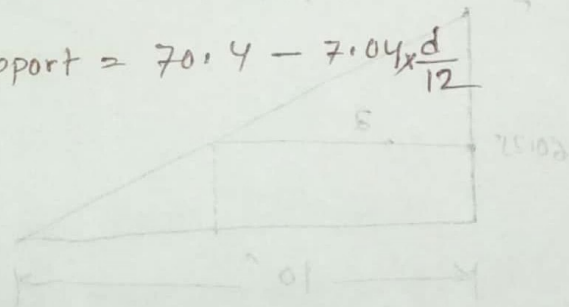 pport = 70.4 - 7.04 x d/12